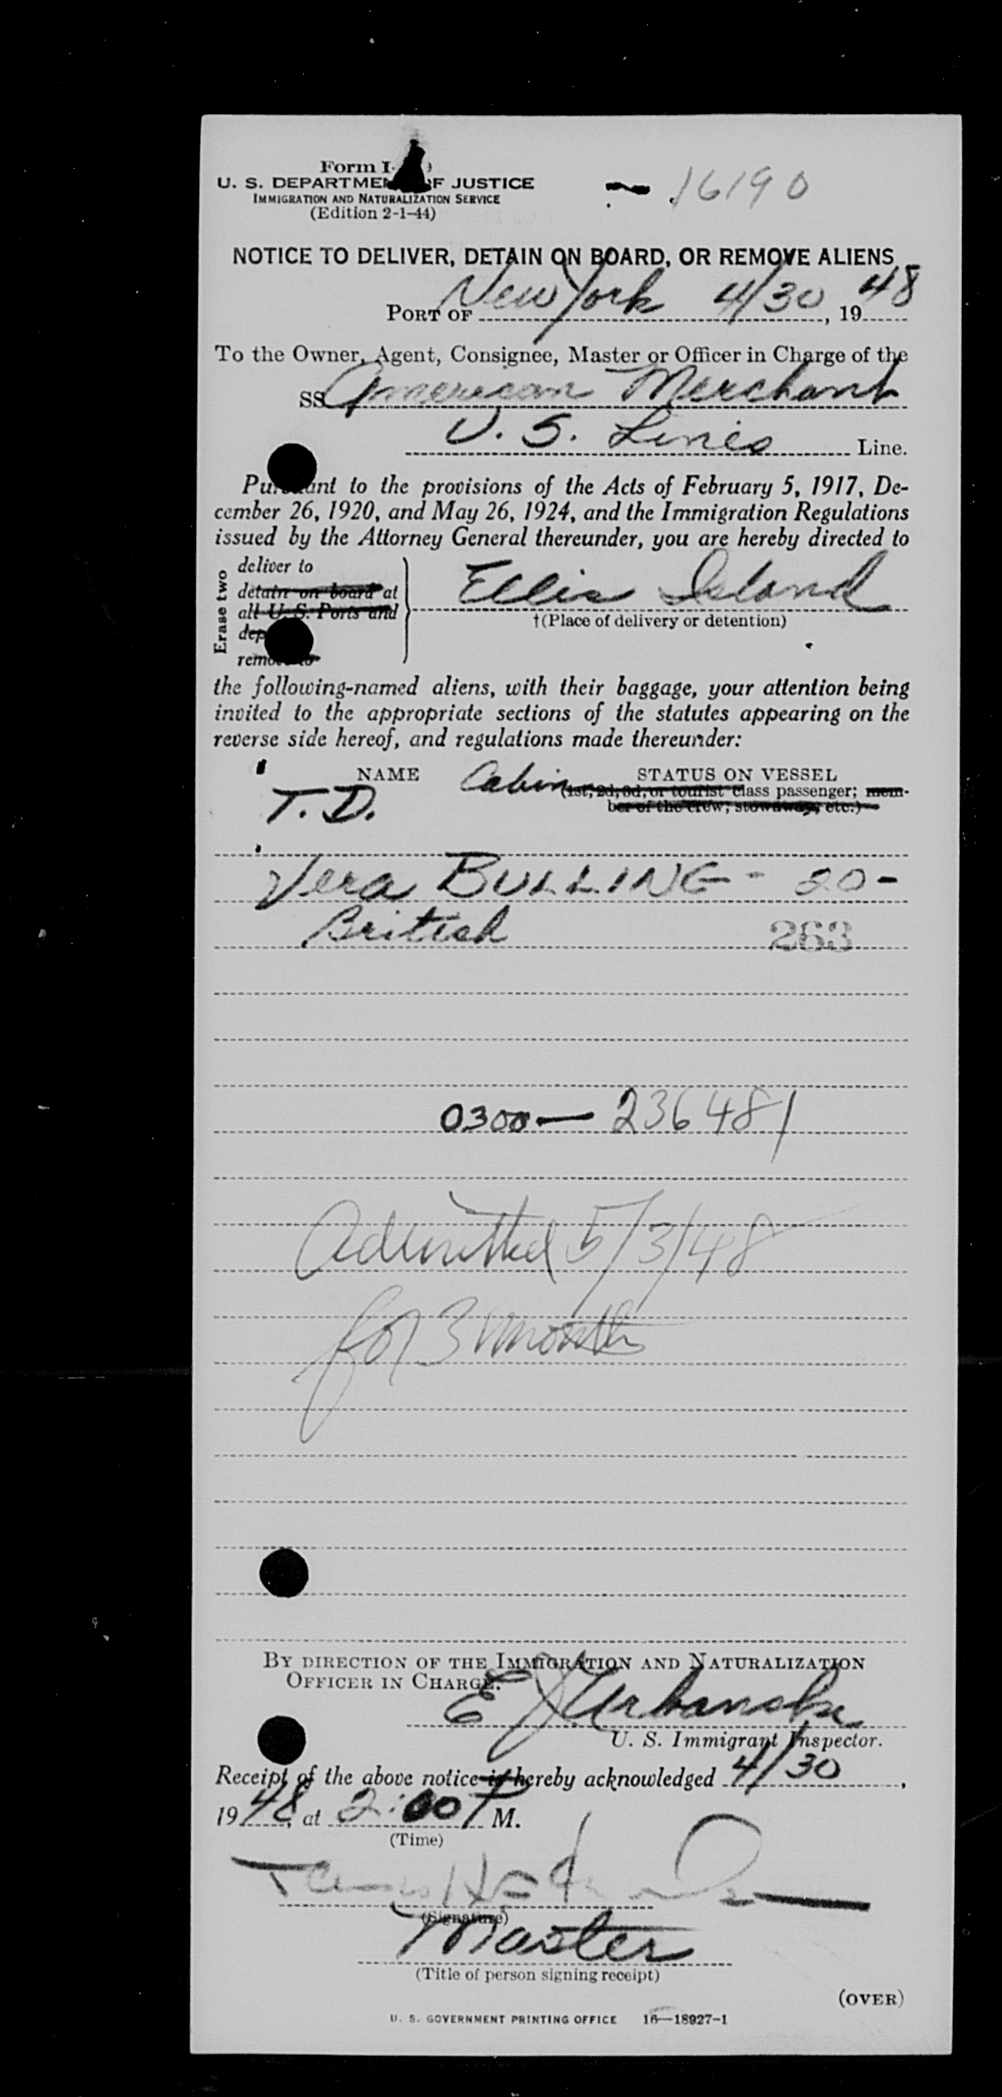 Form I-
U. S. DEPARTMENT OF JUSTICE
IMMIGRATION AND NATURALIZATION SERVICE
(Edition 2-1-44)
16190
NOTICE TO DELIVER, DETAIN ON BOARD, OR REMOVE ALIENS
PORT OF New York 4/30, 1948
To the Owner, Agent, Consignee, Master or Officer in Charge of the
SS American Merchant
U. S. Lines Line.
Pursuant to the provisions of the Acts of February 5, 1917, De-
cember 26, 1920, and May 26, 1924, and the Immigration Regulations
issued by the Attorney General thereunder, you are hereby directed to
Erase two
deliver to
detain on board at
all U. S. Ports and
dep
remove to
Ellis Island
†(Place of delivery or detention)
the following-named aliens, with their baggage, your attention being
invited to the appropriate sections of the statutes appearing on the
reverse side hereof, and regulations made thereunder:
NAME Cabin STATUS ON VESSEL
(1st, 2d, 3d, or tourist class passenger; mem-
ber of the crew; stowaway, etc.)
T. D.
Vera BULLING - 20 -
British 263
0300 — 236481
Admitted 5/3/48
for 3 months
BY DIRECTION OF THE IMMIGRATION AND NATURALIZATION
OFFICER IN CHARGE.
E J Urbanski
U. S. Immigrant Inspector.
Receipt of the above notice is hereby acknowledged 4/30,
1948, at 2:00 P M.
(Time)
(Signature)
Master
(Title of person signing receipt)
(OVER)
U. S. GOVERNMENT PRINTING OFFICE 16—18927-1